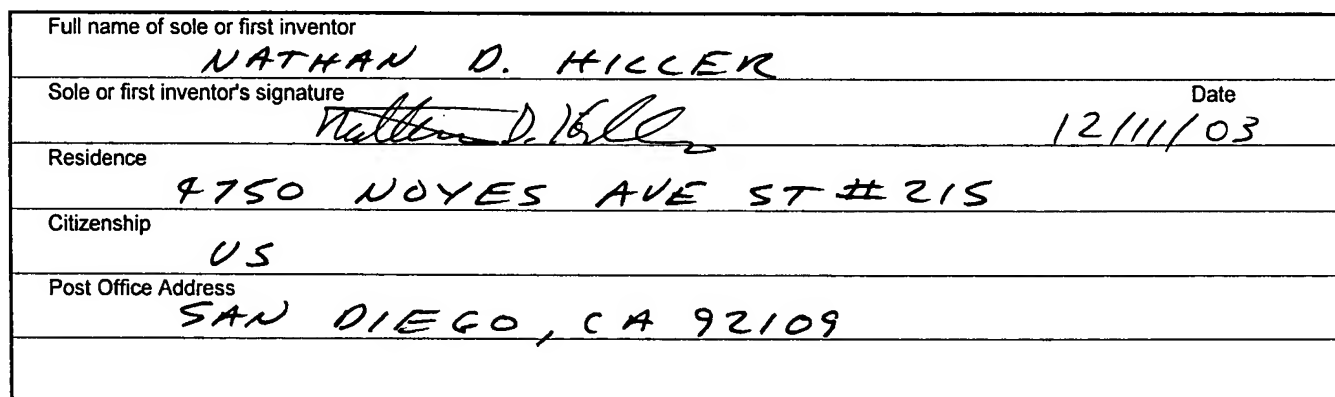 Full name of sole or first inventor
NATHAN D. HILLER
Sole or first inventor's signature Date
Nathan D. Hiller 12/11/03
Residence
4750 NOYES AVE ST #215
Citizenship
US
Post Office Address
SAN DIEGO, CA 92109